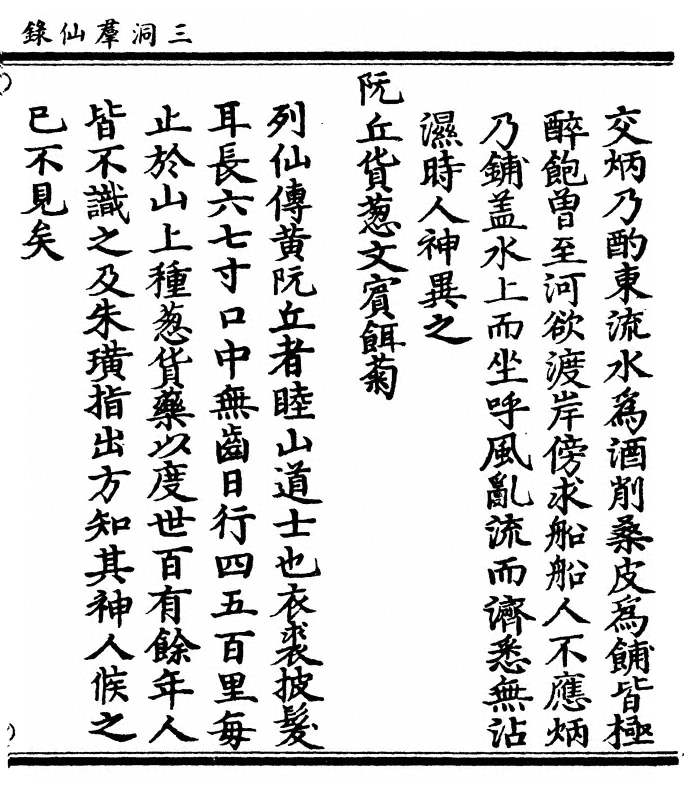 三洞羣仙錄
交炳乃酌東流水為酒削桑皮為餔皆極
醉飽曾至河欲渡岸傍求船船人不應炳
乃鋪盖水上而坐呼風亂流而濟悉無沾
濕時人神異之
阮丘貨葱文賓餌菊
列仙傳黄阮丘者睦山道士也衣裘披髮
耳長六七寸口中無齒日行四五百里每
止於山上種葱貨藥以度世百有餘年人
皆不識之及朱璜指出方知其神人候之
已不見矣